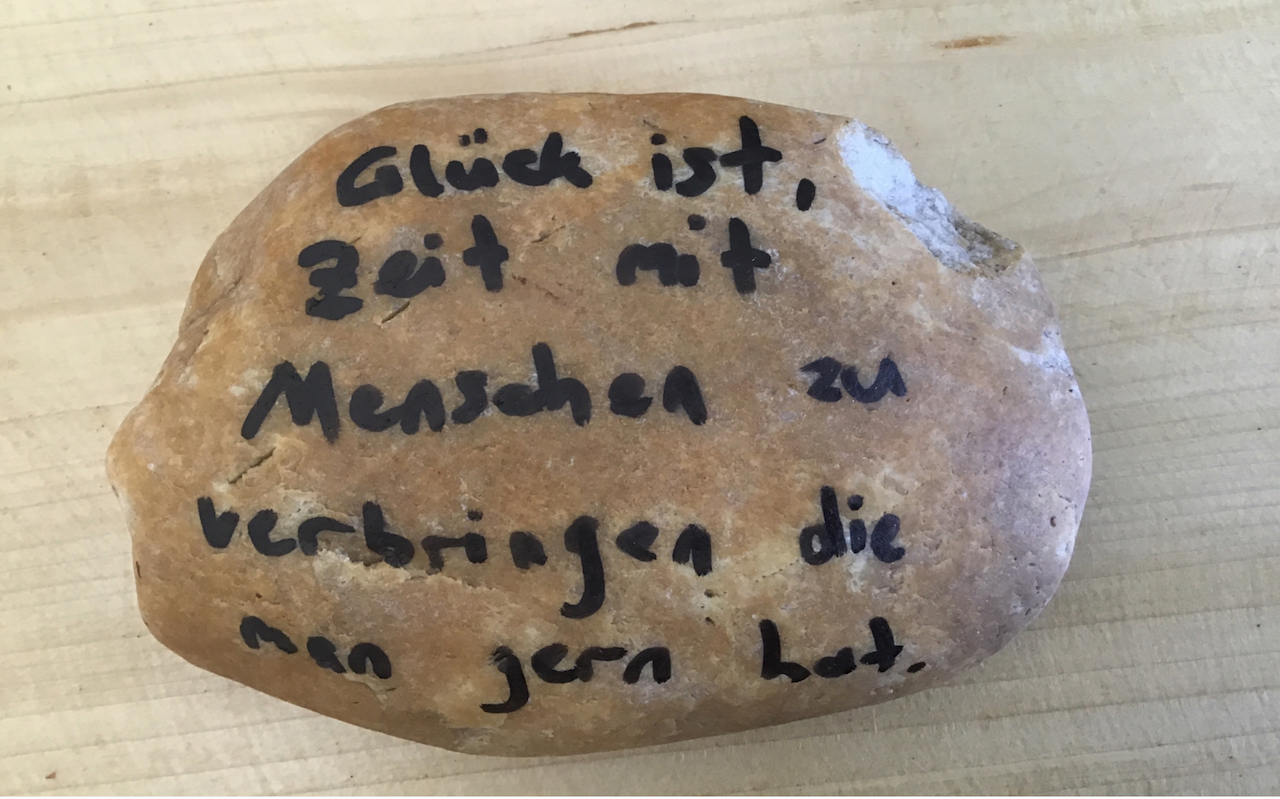 Glück ist,
Zeit mit
Menschen zu
verbringen die
man gern hat.